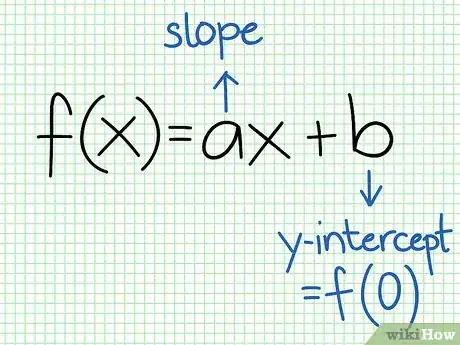 slope
f(x)=ax+b
y-intercept
=f(0)
wikiHow